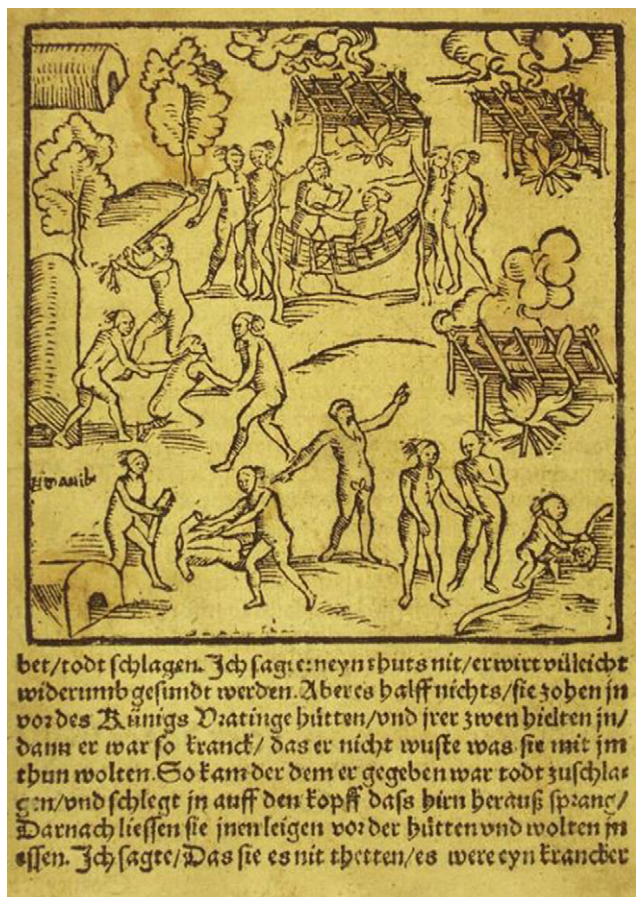 bet/todt schlagen. Jch sagte: neyn thuts nit/er wirt villeicht
widerumb gesundt werden. Aber es halff nichts/sie zohen jn
vor des Künigs Vratinge hütten/vnd jrer zwen hielten jn/
dann er war so kranck/ das er nicht wuste was sie mit jm
thun wolten. So kam der dem er gegeben war todt zuschla⸗
gen/vnd schlegt jn auff den kopff dass hirn herauß sprang/
Darnach liessen sie jnen leigen vor der hütten vnd wolten jn
essen. Jch sagte/Das sie es nit thetten/es were eyn krancker